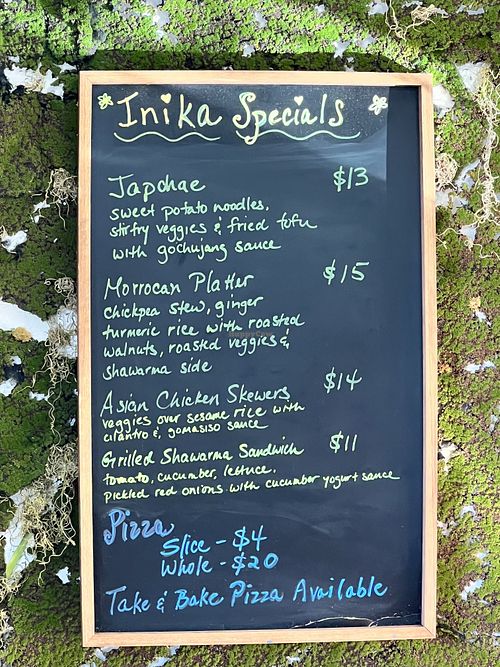 Inika Specials
Japchae $13
sweet potato noodles,
stirfry veggies & fried tofu
with gochujang sauce
Morrocan Platter $15
chickpea stew, ginger
turmeric rice with roasted
walnuts, roasted veggies &
shawarma side
Asian Chicken Skewers $14
veggies over sesame rice with
cilantro & gomasiso sauce
Grilled Shawarma Sandwich $11
tomato, cucumber, lettuce,
pickled red onions with cucumber yogurt sauce
Pizza
Slice - $4
Whole - $20
Take & Bake Pizza Available